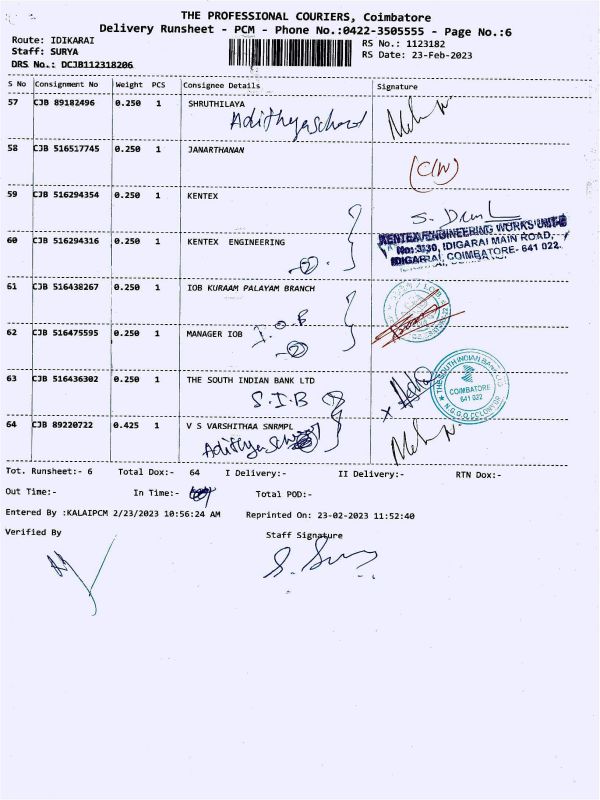 THE PROFESSIONAL COURIERS, Coimbatore
Delivery Runsheet - PCM - Phone No.:0422-3505555 - Page No.:6
Route: IDIKARAI
Staff: SURYA
DRS No.: DCJB112318206
RS No.: 1123182
RS Date: 23-Feb-2023
S No Consignment No Weight PCS Consignee Details Signature
57 CJB 89182496 0.250 1 SHRUTHILAYA
Adithya School
58 CJB 516517745 0.250 1 JANARTHANAN
59 CJB 516294354 0.250 1 KENTEX
60 CJB 516294316 0.250 1 KENTEX ENGINEERING
2
KENTEX ENGINEERING WORKS UNIT-II
No: 3/30, IDIGARAI MAIN ROAD,
IDIGARAI, COIMBATORE- 641 022.
61 CJB 516438267 0.250 1 IOB KURAAM PALAYAM BRANCH
I.O.B
62 CJB 516475595 0.250 1 MANAGER IOB
2
63 CJB 516436302 0.250 1 THE SOUTH INDIAN BANK LTD
S.I.B
THE SOUTH INDIAN BANK LTD
COIMBATORE
641 022
N.G.G.O COLONY
64 CJB 89220722 0.425 1 V S VARSHITHAA SNRMPL
Adithya
Tot. Runsheet:- 6 Total Dox:- 64 I Delivery:- II Delivery:- RTN Dox:-
Out Time:- In Time:- Total POD:-
Entered By :KALAIPCM 2/23/2023 10:56:24 AM Reprinted On: 23-02-2023 11:52:40
Verified By Staff Signature